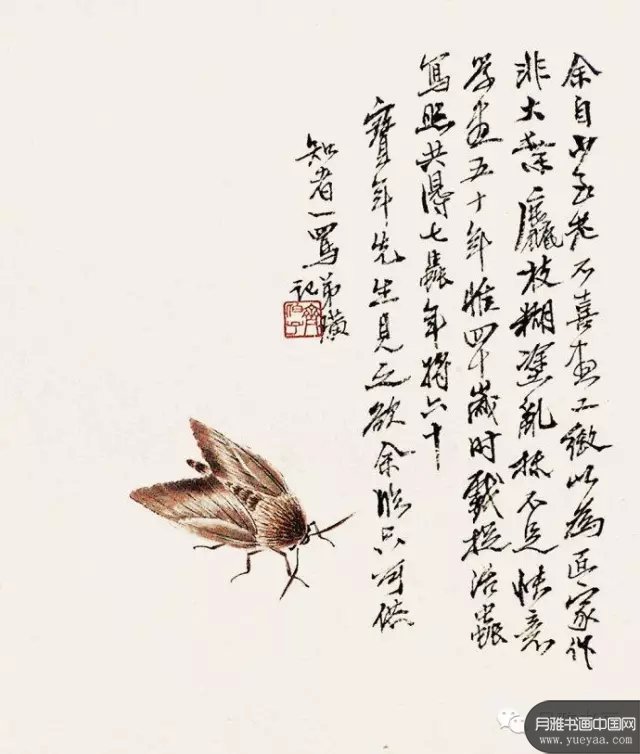 余自少至老不喜画工致以为匠家作
非大叶麤枝糊塗亂抹不足快意
學画五十年惟四十歲时戲捉活蟲
寫照共得七蟲年将六十
寶年先生見之欲余臨只可供
知者一罵弟璜
記
月雅书画中国网
www.yueyaa.com